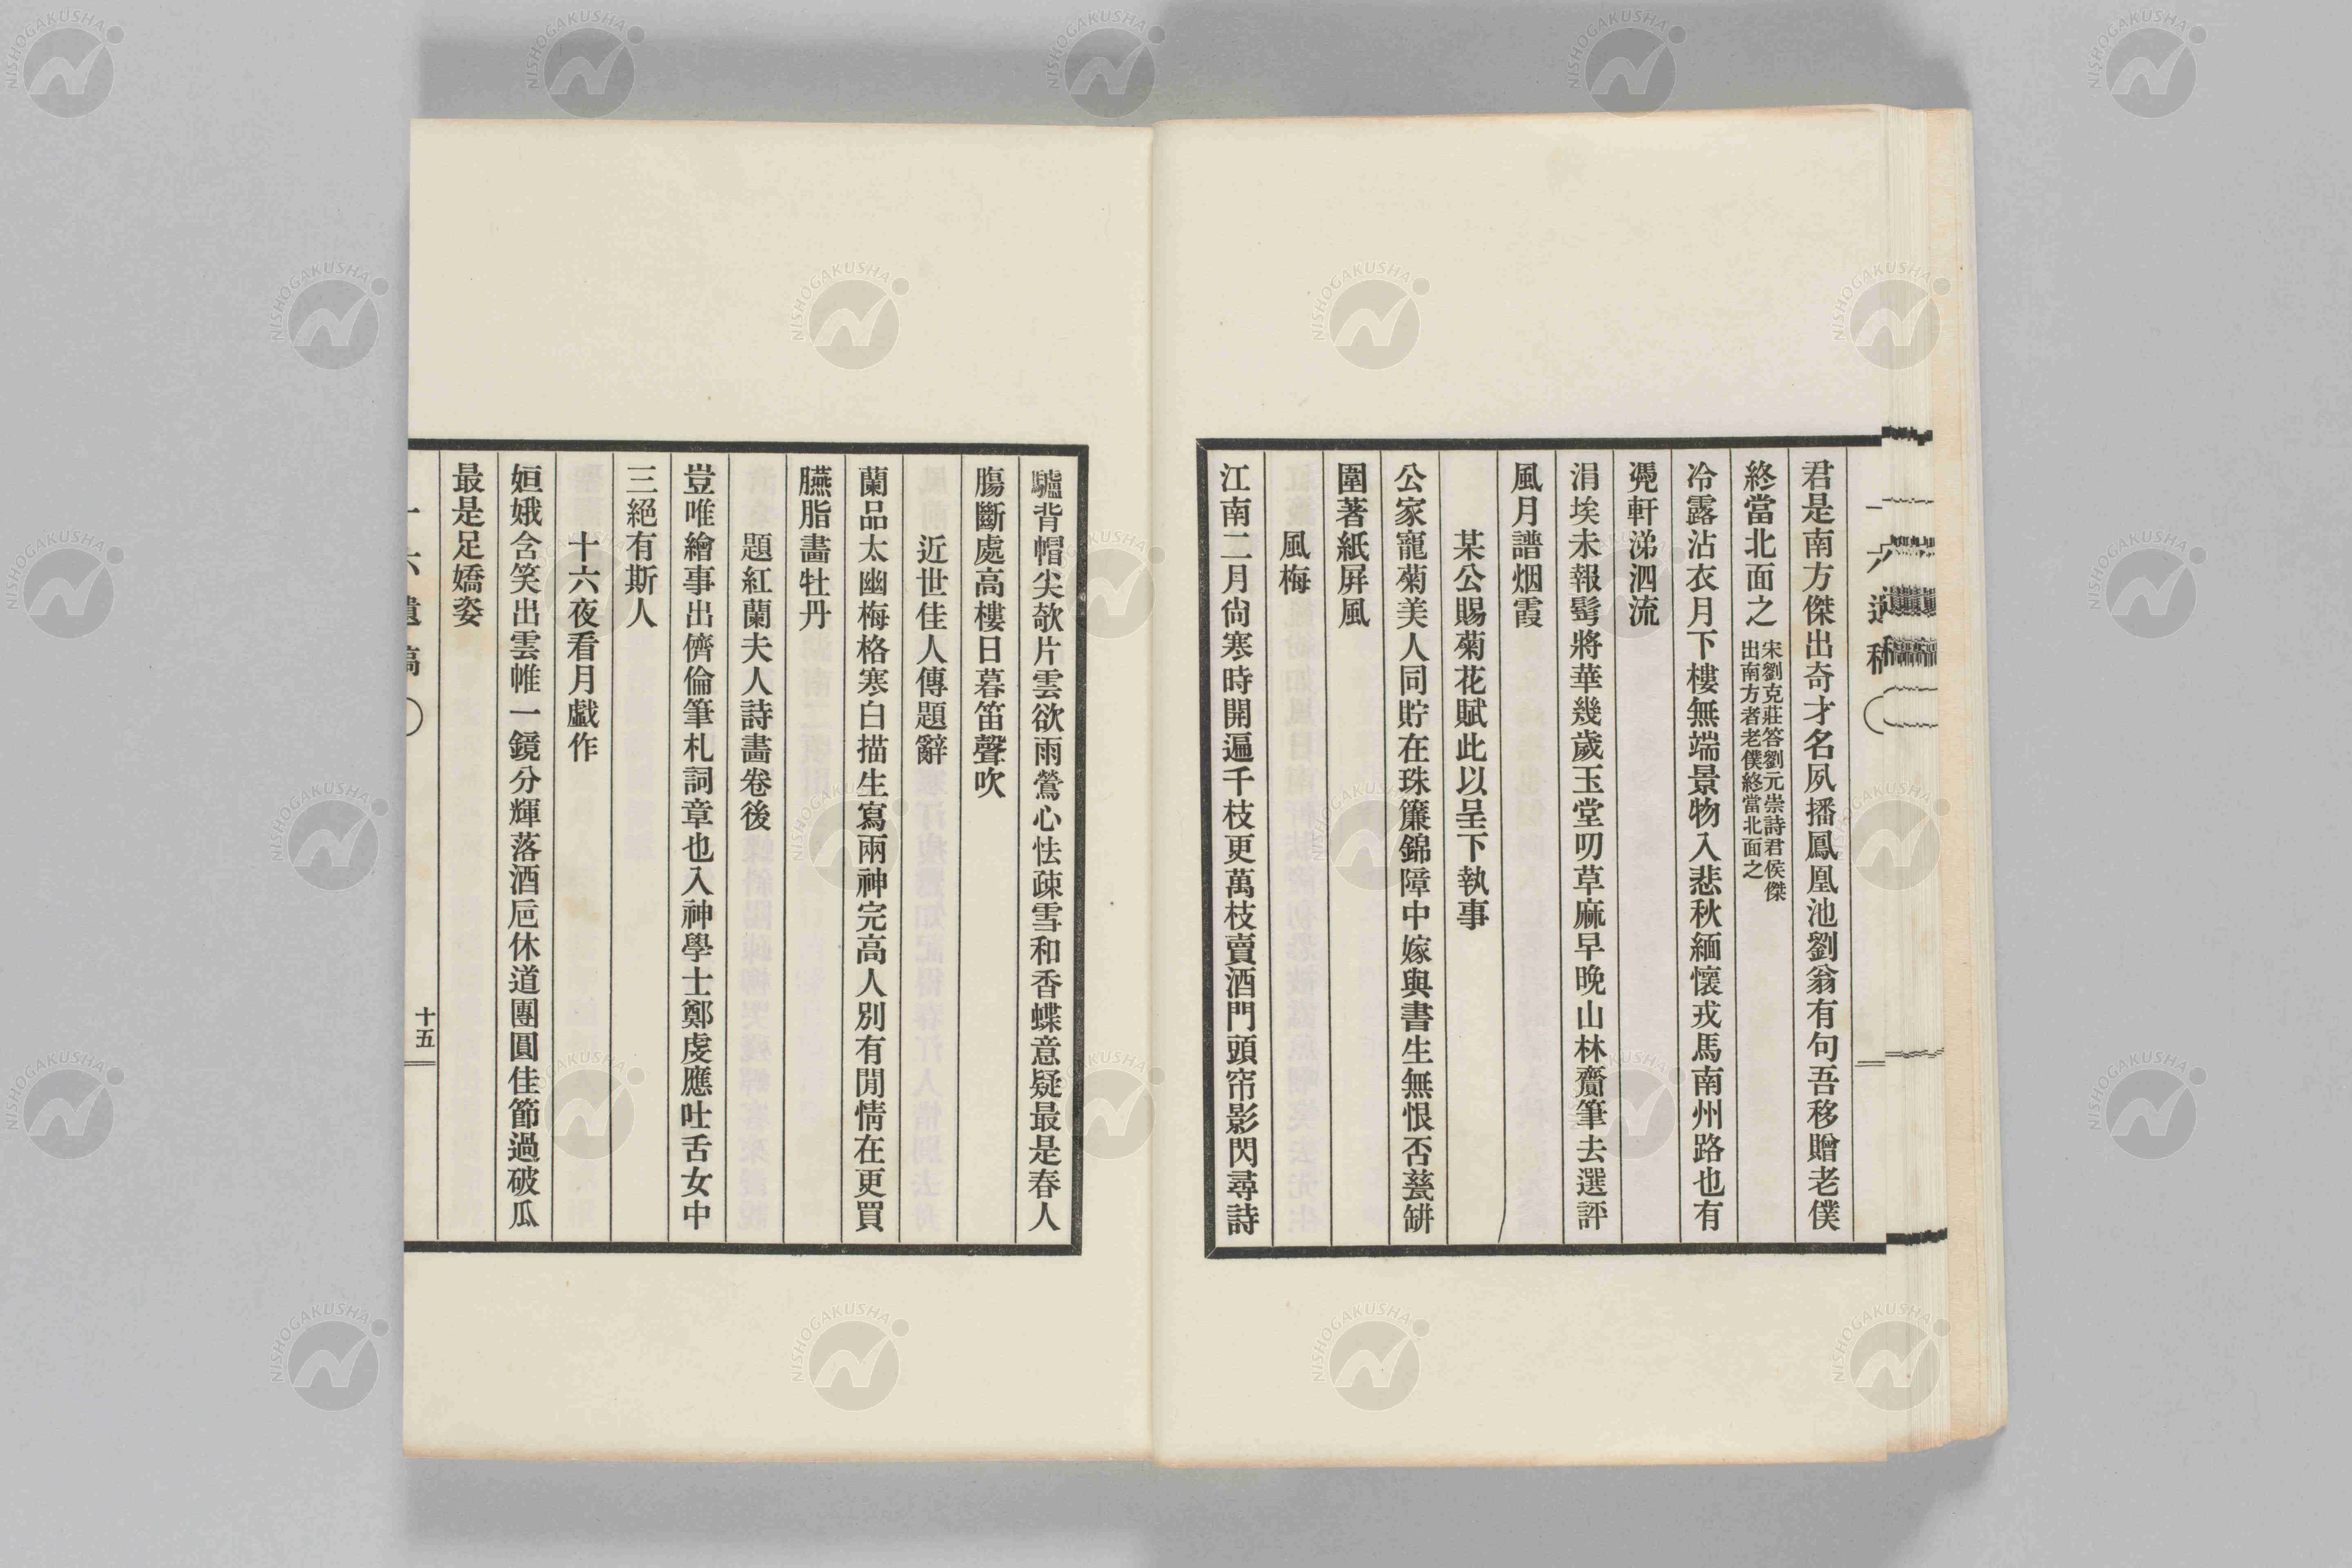 君是南方傑出奇才名夙播鳳凰池劉翁有句吾移贈老僕
終當北面之
宋劉克莊答劉元崇詩君侯傑
出南方者老僕終當北面之
冷露沾衣月下樓無端景物入悲秋緬懷戎馬南州路也有
凴軒涕泗流
涓埃未報鬢將華幾歲玉堂叨草麻早晚山林齎筆去選評
風月譜烟霞
某公賜菊花賦此以呈下執事
公家寵菊美人同貯在珠簾錦障中嫁與書生無恨否甆缾
圍著紙屏風
風梅
江南二月尙寒時開遍千枝更萬枝賣酒門頭帘影閃尋詩
驢背帽尖欹片雲欲雨鶯心怯疎雪和香蝶意疑最是春人
膓斷處高樓日暮笛聲吹
近世佳人傳題辭
蘭品太幽梅格寒白描生寫兩神完高人別有閒情在更買
臙脂畵牡丹
題紅蘭夫人詩畵卷後
豈唯繪事出儕倫筆札詞章也入神學士鄭虔應吐舌女中
三絕有斯人
十六夜看月戲作
姮娥含笑出雲帷一鏡分輝落酒巵休道團圓佳節過破瓜
最是足嬌姿
十五
NISHOGAKUSHA